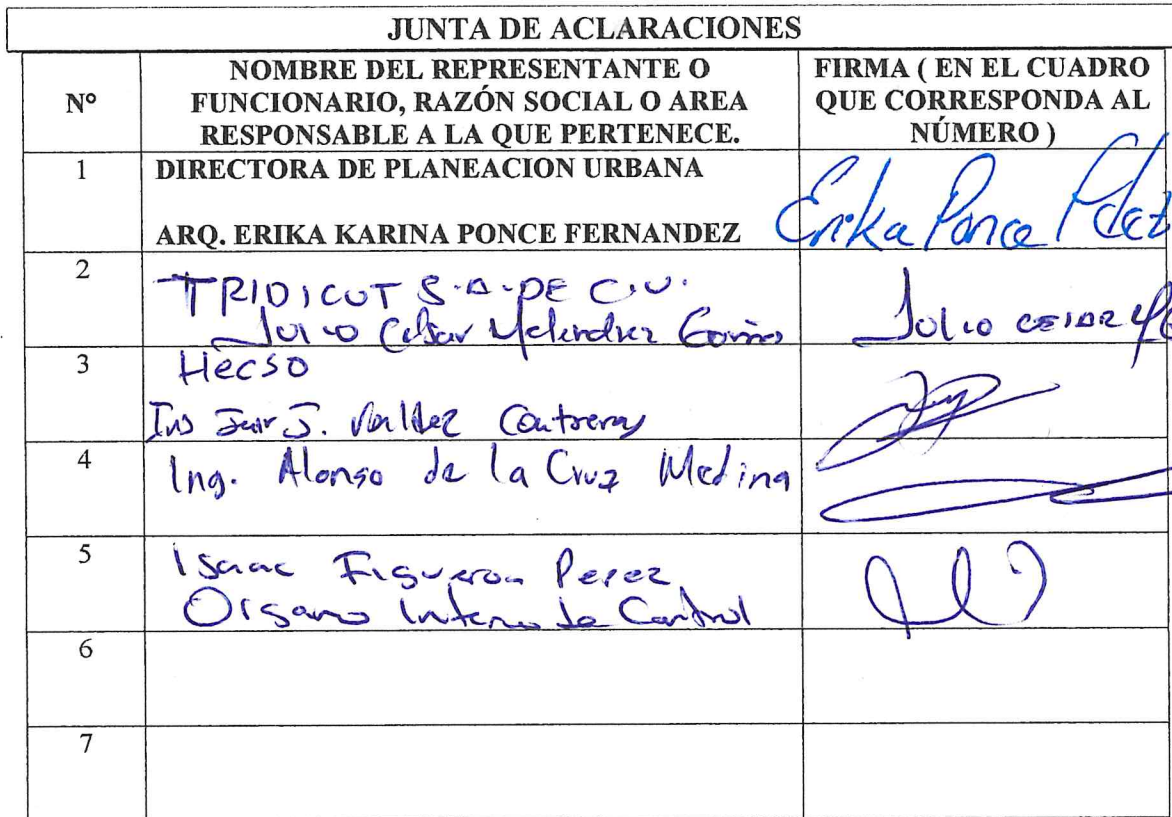 JUNTA DE ACLARACIONES
N° NOMBRE DEL REPRESENTANTE O FUNCIONARIO, RAZÓN SOCIAL O AREA RESPONSABLE A LA QUE PERTENECE. FIRMA ( EN EL CUADRO QUE CORRESPONDA AL NÚMERO )
1 DIRECTORA DE PLANEACION URBANA
ARQ. ERIKA KARINA PONCE FERNANDEZ Erika Ponce
2 TRIDICUT S.A. DE C.V.
Julio Cesar Melendrez Julio CESAR
3 Hecso
J. Valdez Contreras
4 Ing. Alonso de la Cruz Medina
5 Isaac Figueroa Perez
Organo Interno de Control
6
7